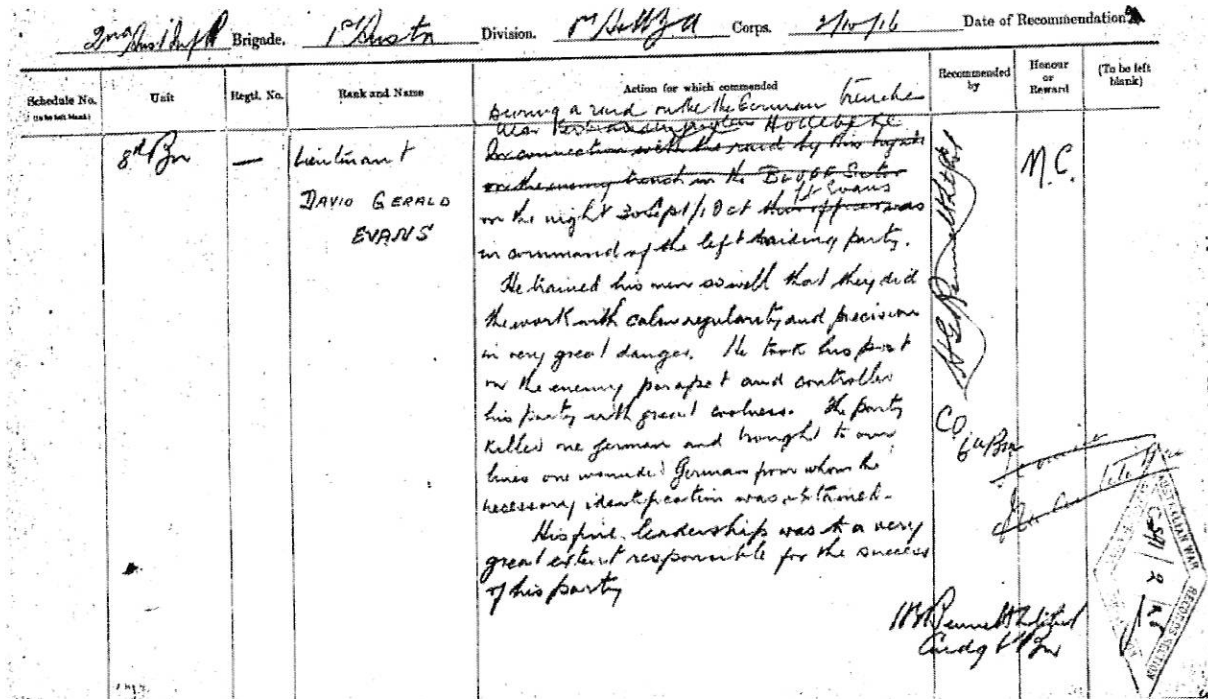 2nd Aust Inf Brigade. 1st Austn Division. Corps. 2/10/16 Date of Recommendation
Schedule No. (to be left blank) Unit Regtl. No. Rank and Name Action for which commended Recommended by Honour or Reward (To be left blank)
During a raid on the German trenches
near Hollebeke
8th Bn — Lieutenant In connection with the raid by this M.C.
on the enemy trench in the BLUFF Sector
DAVID GERALD Lt Evans
on the night 30 Sept/1 Oct this officer was
EVANS
in command of the left raiding party.
He trained his men so well that they did
the work with calm regularity and precision
in very great danger. He took his post
on the enemy parapet and controlled
his party with great coolness. The party
killed one German and brought to our
lines one wounded German from whom the
necessary identification was obtained.
His fine leadership was to a very
great extent responsible for the success
of his party
H G Bennett Lt Col
CO 6th Bn
H G Bennett Lt Col
Cmdg 6 Bn
AUSTRALIAN WAR RECORDS SECTION